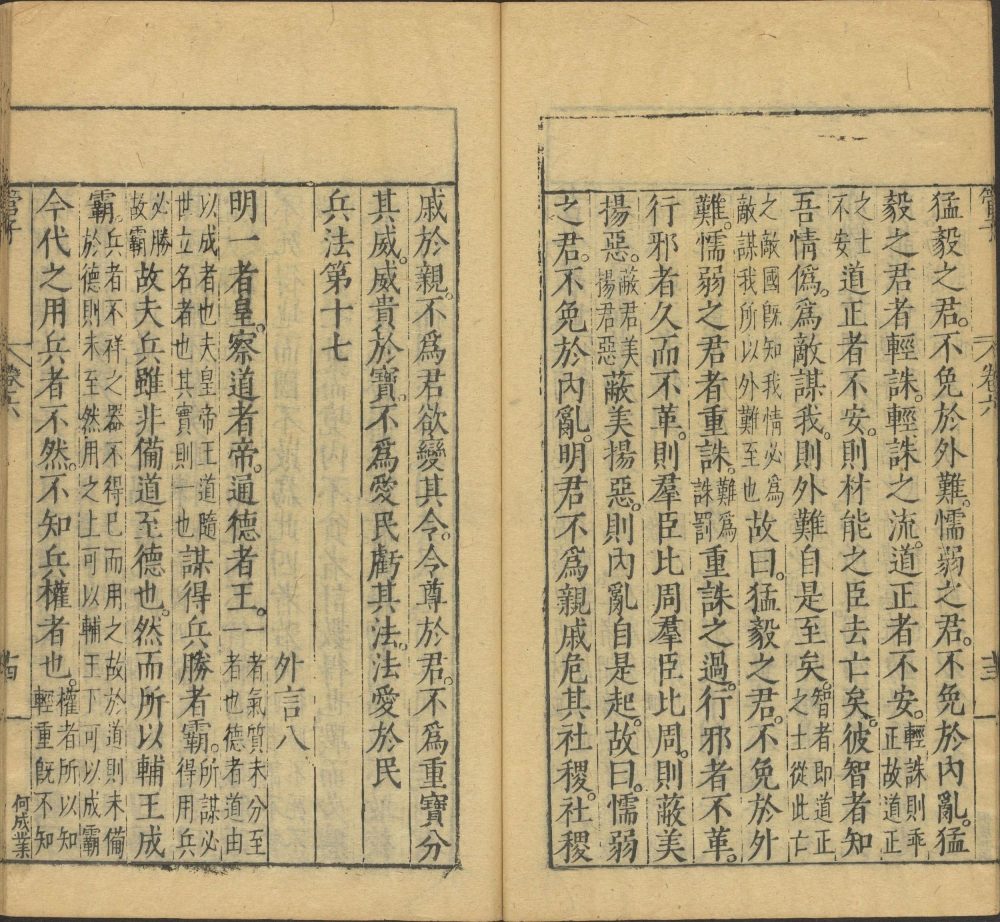 卷六
猛毅之君。不免於外難。懦弱之君。不免於內亂。猛
毅之君者輕誅。輕誅之流。道正者不安。輕誅則乖正故道正
之士不安道正者不安。則材能之臣去亡矣。彼智者知
吾情僞。爲敵謀我。則外難自是至矣。智者即道正之士從此亡
之敵國既知我情必爲敵謀我所以外難至也故曰。猛毅之君。不免於外
難。懦弱之君者重誅。難爲誅罰重誅之過。行邪者不革。
行邪者久而不革。則羣臣比周。羣臣比周。則蔽美
揚惡。蔽君美揚君惡蔽美揚惡。則內亂自是起。故曰。懦弱
之君。不免於內亂。明君不爲親戚危其社稷。社稷
戚於親。不爲君欲變其令。令尊於君。不爲重寶分
其威。威貴於寶。不爲愛民虧其法。法愛於民
兵法第十七 外言八
明一者皇。察道者帝。通德者王。一者氣質未分至一者也德者道由
以成者也夫皇帝王道隨世立名者也其實則一也謀得兵勝者霸。所謀必得用兵
必勝故霸故夫兵雖非備道至德也。然而所以輔王成
霸。兵者不祥之器不得已而用之故於道則未備於德則未至然用之上可以輔王下可以成霸
今代之用兵者不然。不知兵權者也。權者所以知輕重既不知
管子 卷六
何成業